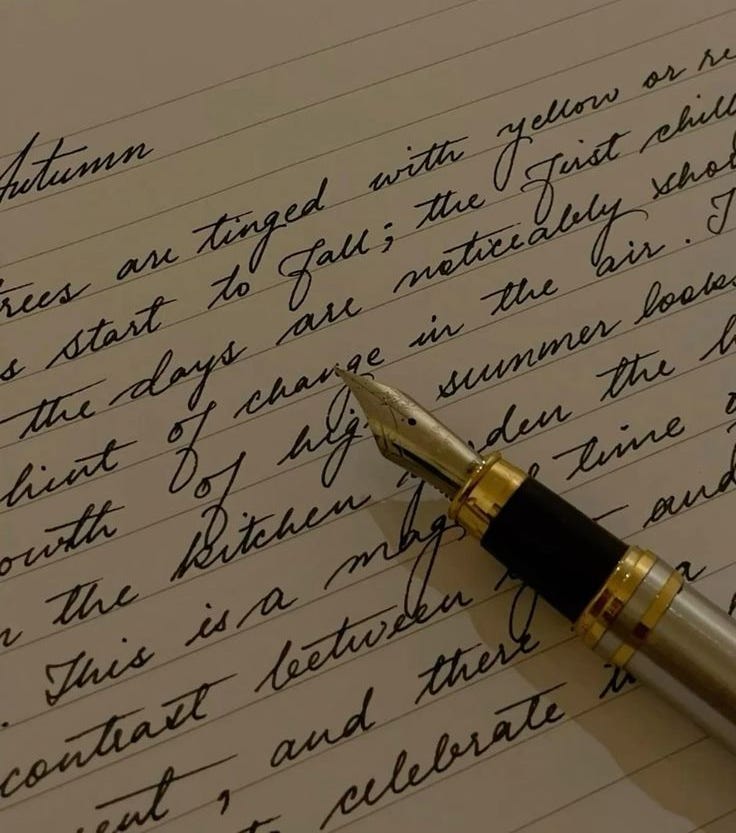 Autumn
trees are tinged with yellow or
start to fall; the first chill
the days are noticeably
hint of change in the air.
of high summer looks
the kitchen garden the
. This is a time
contrast between – and
, and there a
celebrate